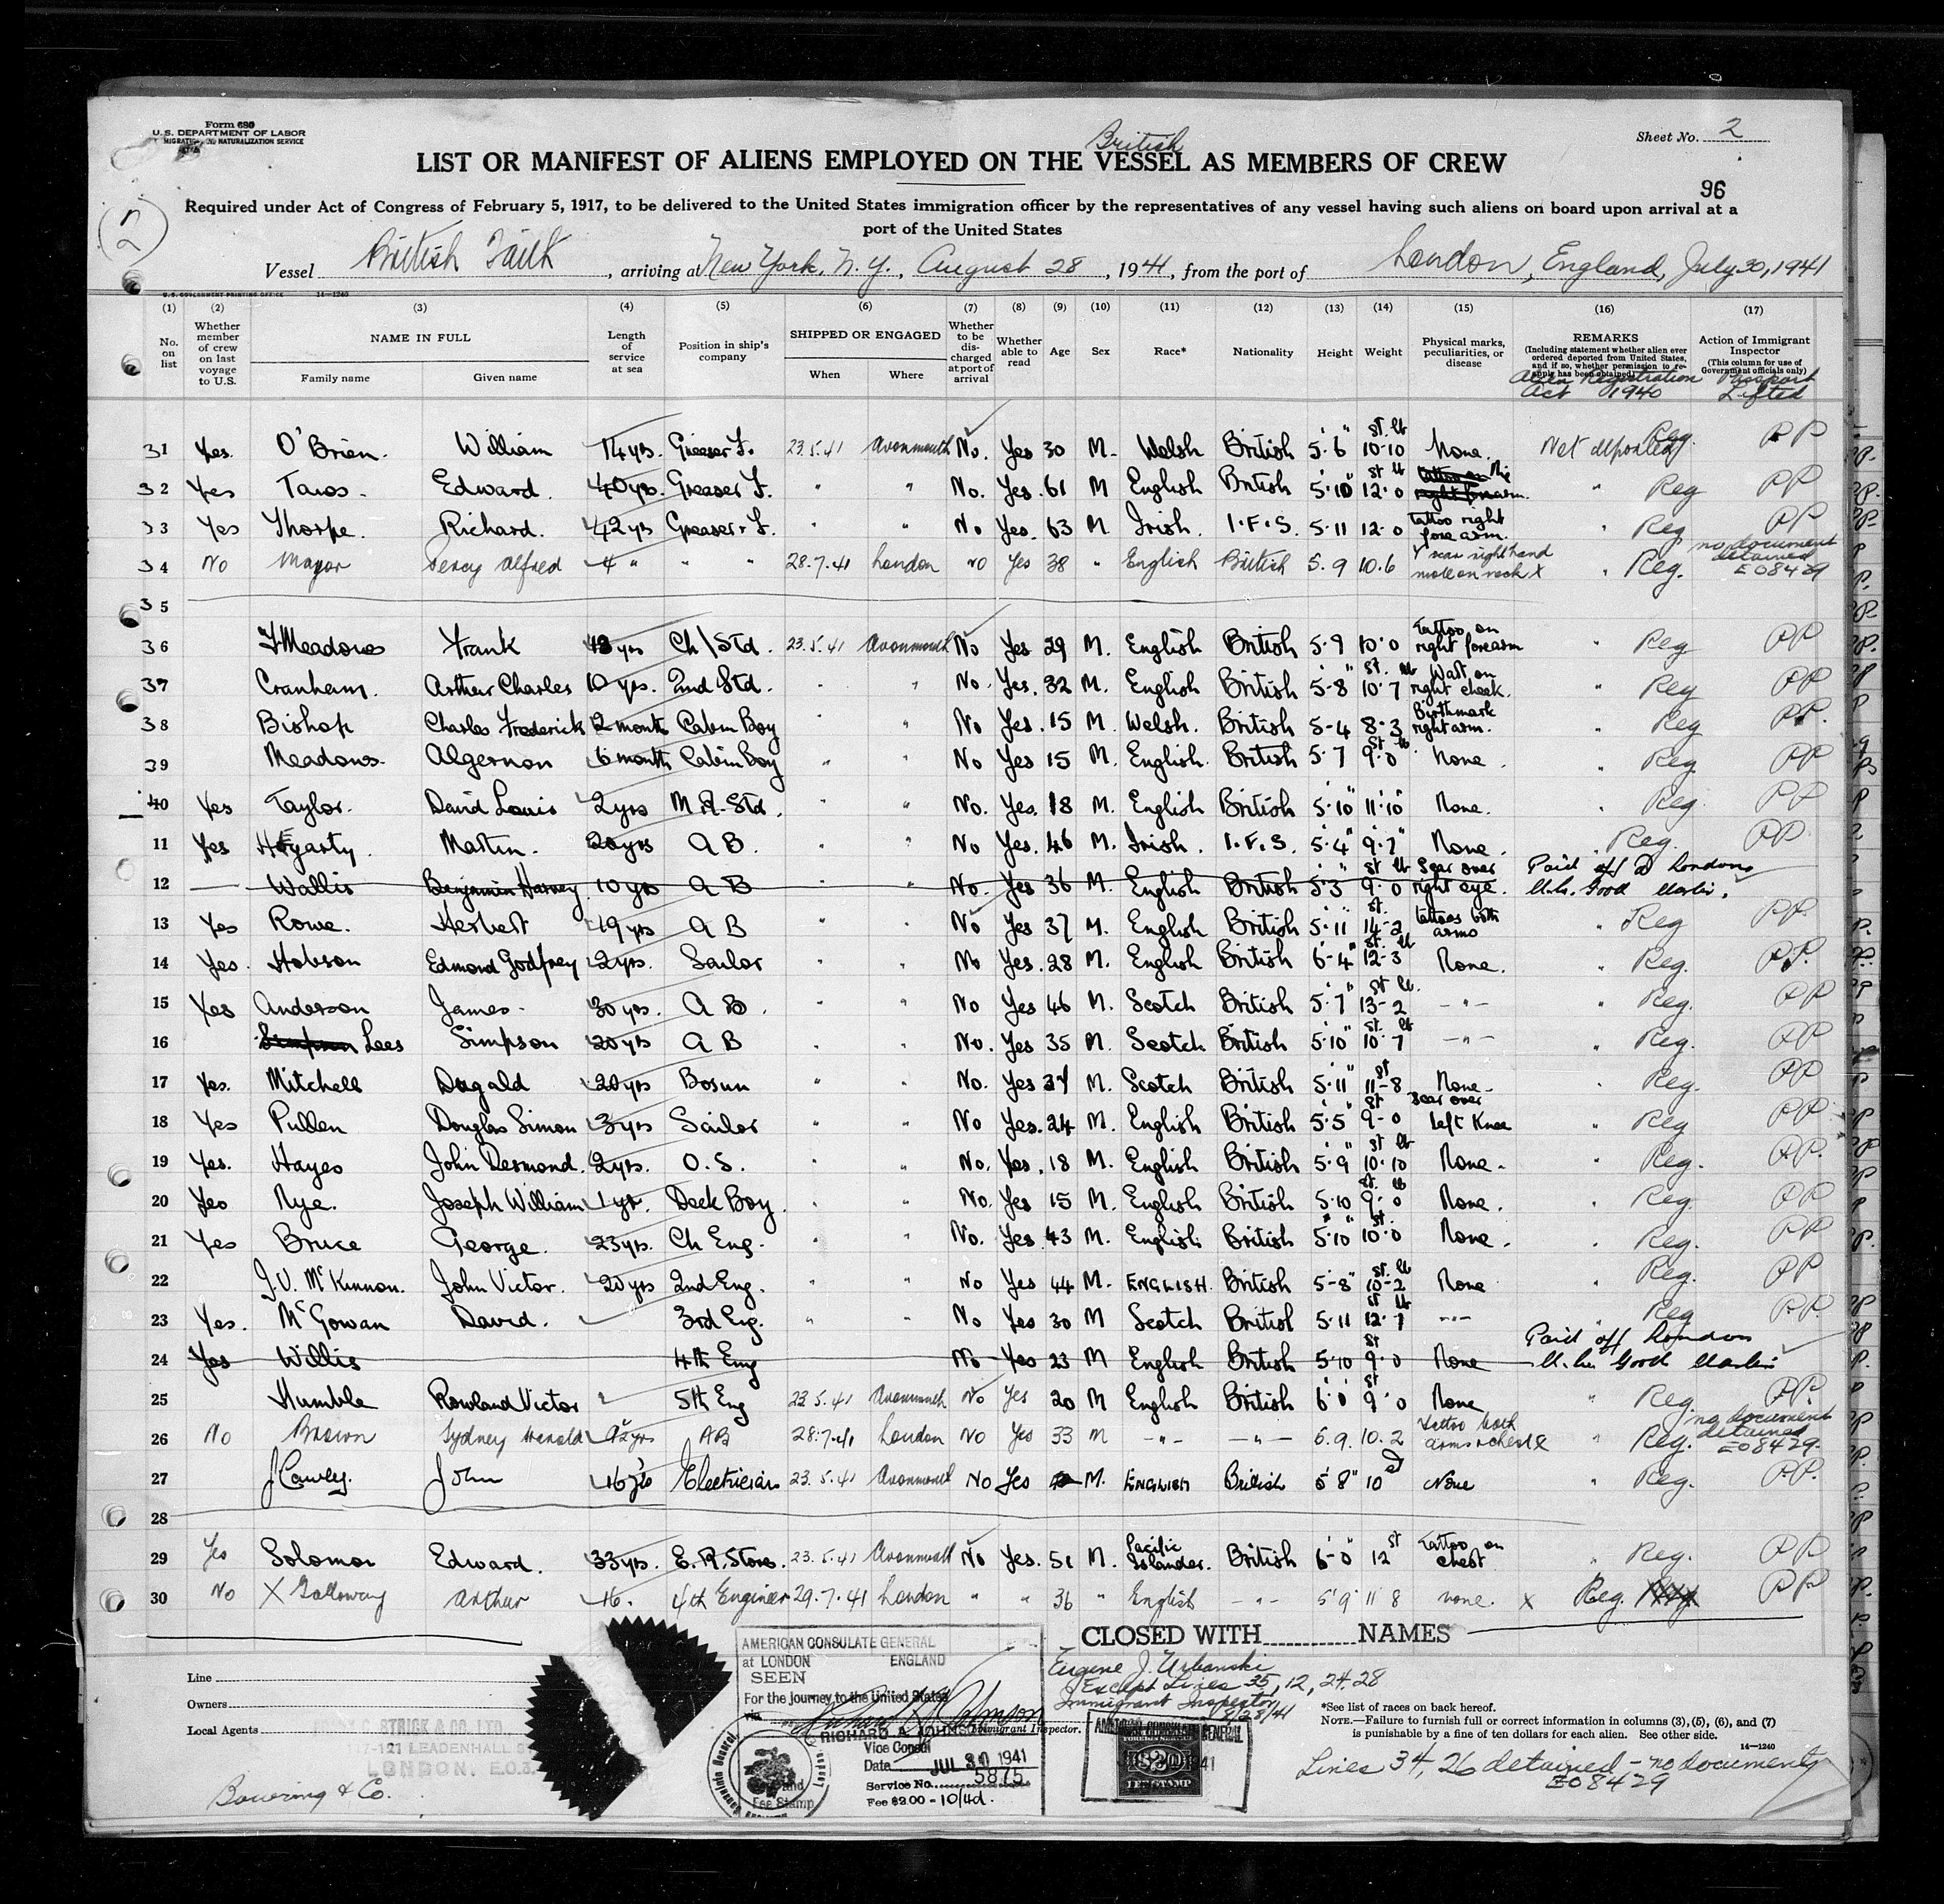 Form 680
U.S. DEPARTMENT OF LABOR
IMMIGRATION AND NATURALIZATION SERVICE
Sheet No. 2
British
LIST OR MANIFEST OF ALIENS EMPLOYED ON THE VESSEL AS MEMBERS OF CREW
96
2
Required under Act of Congress of February 5, 1917, to be delivered to the United States immigration officer by the representatives of any vessel having such aliens on board upon arrival at a
port of the United States
Vessel British Faith, arriving at New York, N.Y., August 28, 1941, from the port of London, England, July 30, 1941
U.S. GOVERNMENT PRINTING OFFICE 14—1240
(1) (2) (3) (4) (5) (6) (7) (8) (9) (10) (11) (12) (13) (14) (15) (16) (17)
No. on list Whether member of crew on last voyage to U.S. NAME IN FULL Family name Given name Length of service at sea Position in ship's company SHIPPED OR ENGAGED When Where Whether to be discharged at port of arrival Whether able to read Age Sex Race* Nationality Height Weight Physical marks, peculiarities, or disease REMARKS (Including statement whether alien ever ordered deported from United States, and if so, whether permission to reapply has been obtained) Action of Immigrant Inspector (This column for use of Government officials only)
Alien Registration Act 1940 Passport Lifted
31 Yes. O'Brien. William 14yrs. Greaser F. 23.5.41 Avonmouth No. Yes 30 M. Welsh British 5·6 10·10 None. Not deported Reg. PP
32 Yes Edward. 40yrs. Greaser F. " " No. Yes. 61 M English British 5·10 12·0 " Reg PP
33 Yes Thorpe. Richard. 42yrs Greaser F. " " No Yes. 63 M. Irish. I.F.S. 5·11 12·0 tattoo right fore arm. " Reg PP
34 No Mayor Percy Alfred 4 " " 28.7.41 London no Yes 38 " English British 5.9 10.6 scar right hand mole on neck X " Reg. no document detained E08429
35
36 Meadows Frank yrs Ch/Std. 23.5.41 Avonmouth No Yes 29 M. English British 5·9 10·0 Tattoo on right forearm " Reg PP
37 Cranham. Arthur Charles 10 yrs. 2nd Std. " " No. Yes. 32 M. English British 5-8 10·7 Wart on right cheek. " Reg PP
38 Bishop Charles Frederick 2 month Cabin Boy " " No Yes. 15 M Welsh. British 5-4 8·3 Birthmark right arm. " Reg PP.
39 Meadows. Algernon 6 month Cabin Boy " " No Yes 15 M. English. British 5·7 9·0 None. " Reg PP
40 Yes Taylor. David Louis 2yrs M.R. Std. " " No. Yes. 18 M. English British 5·10 11·10 None. " Reg. PP
11 Yes Hegarty. Martin. 20yrs AB. " " No Yes. 46 M. Irish. I.F.S. 5·4 9·7 None. " Reg. PP
12 — Wallis Benjamin Harvey 10yrs AB " " No. Yes 36 M. English British 5·3 9·0 Scar over right eye. Paid off @ London Good
13 Yes Rowe. Herbert 19yrs AB " " No Yes 37 M. English British 5·11 14-2 tattoos both arms " Reg PP
14 Yes. Hobson Edmond Godfrey 2yrs. Sailor " " No Yes. 28 M. English British 6-4 12-3 None. " Reg. PP.
15 Yes Anderson James. 30yrs. AB. " " No Yes 46 M. Scotch British 5·7 13-2 –"– " Reg. PP
16 Lees Simpson 20yrs AB " " No. Yes 35 M. Scotch British 5·10 10·7 –"– " Reg. PP
17 Yes. Mitchell Dugald 20yrs Bosun " " No. Yes M. Scotch British 5·11 11-8 None. " Reg. PP
18 Yes Pullen Douglas Simon 3yrs Sailor " " No Yes. 24 M. English British 5·5 9-0 Scar over left Knee " Reg PP
19 Yes. Hayes John Desmond. 2yrs. O.S. " " No. Yes. 18 M. English British 5·9 10·10 None. " Reg. PP.
20 Yes Nye. Joseph William 1yr. Deck Boy " " No. Yes 15 M. English British 5·10 9·0 None. " Reg. PP
21 Yes Bruce George. 23yrs. Ch Eng. " " No. Yes. 43 M. English British 5·10 10·0 None. " Reg. PP
22 J.V. McKinnon. John Victor. 20yrs 2nd Eng. " " No Yes 44 M. ENGLISH. British 5-8 10-2 None " Reg. PP
23 Yes. McGowan David. 3rd Eng. " " No Yes 30 M Scotch British 5·11 12·7 –"– " Reg PP.
24 Yes Willis 4th Eng No Yes 23 M English British 5·10 9·0 None Paid off London Good
25 Humble Rowland Victor 5th Eng 23.5.41 Avonmouth No Yes 20 M English British 6·0 9·0 None " Reg. PP.
26 No Brown Sydney Harold yrs AB 28.7.41 London No Yes 33 M –"– –"– 6.9. 10.2 tattoo both arms & chest " Reg. no document detained E08429.
27 J Cawley. John 16 yrs Electrician 23.5.41 Avonmouth No Yes M. ENGLISH British 5 8" 10 None " Reg. PP.
28
29 Yes Solomon Edward. 33yrs. E.R. Stores. 23.5.41 Avonmouth No Yes. 51 M. Pacific Islander. British 6-0 12 Tattoo on chest " Reg. PP
30 No X Galloway Arthur 16. 4th Engineer 29.7.41 London " " 36 " English –"– 5'9" 11 8 none. X Reg. PP
CLOSED WITH NAMES
Line
Owners
Local Agents STRICK & CO. LTD.
LEADENHALL ST
LONDON. E.C.3.
Bowring & Co.
AMERICAN CONSULATE GENERAL
at LONDON ENGLAND
SEEN
For the journey to the United States
via
RICHARD A. JOHNSON
Vice Consul
Date JUL 30 1941
Service No. 5875
Fee $2.00 - 10/4d.
Fee Stamp
Immigrant Inspector.
Eugene J. Urbanski
Except Lines 35, 12, 24, 28
Immigrant Inspector
8/28/41
AMERICAN CONSULATE GENERAL
FEE STAMP
*See list of races on back hereof.
NOTE.—Failure to furnish full or correct information in columns (3), (5), (6), and (7)
is punishable by a fine of ten dollars for each alien. See other side.
14—1240
Lines 34, 26 detained - no documents
E08429